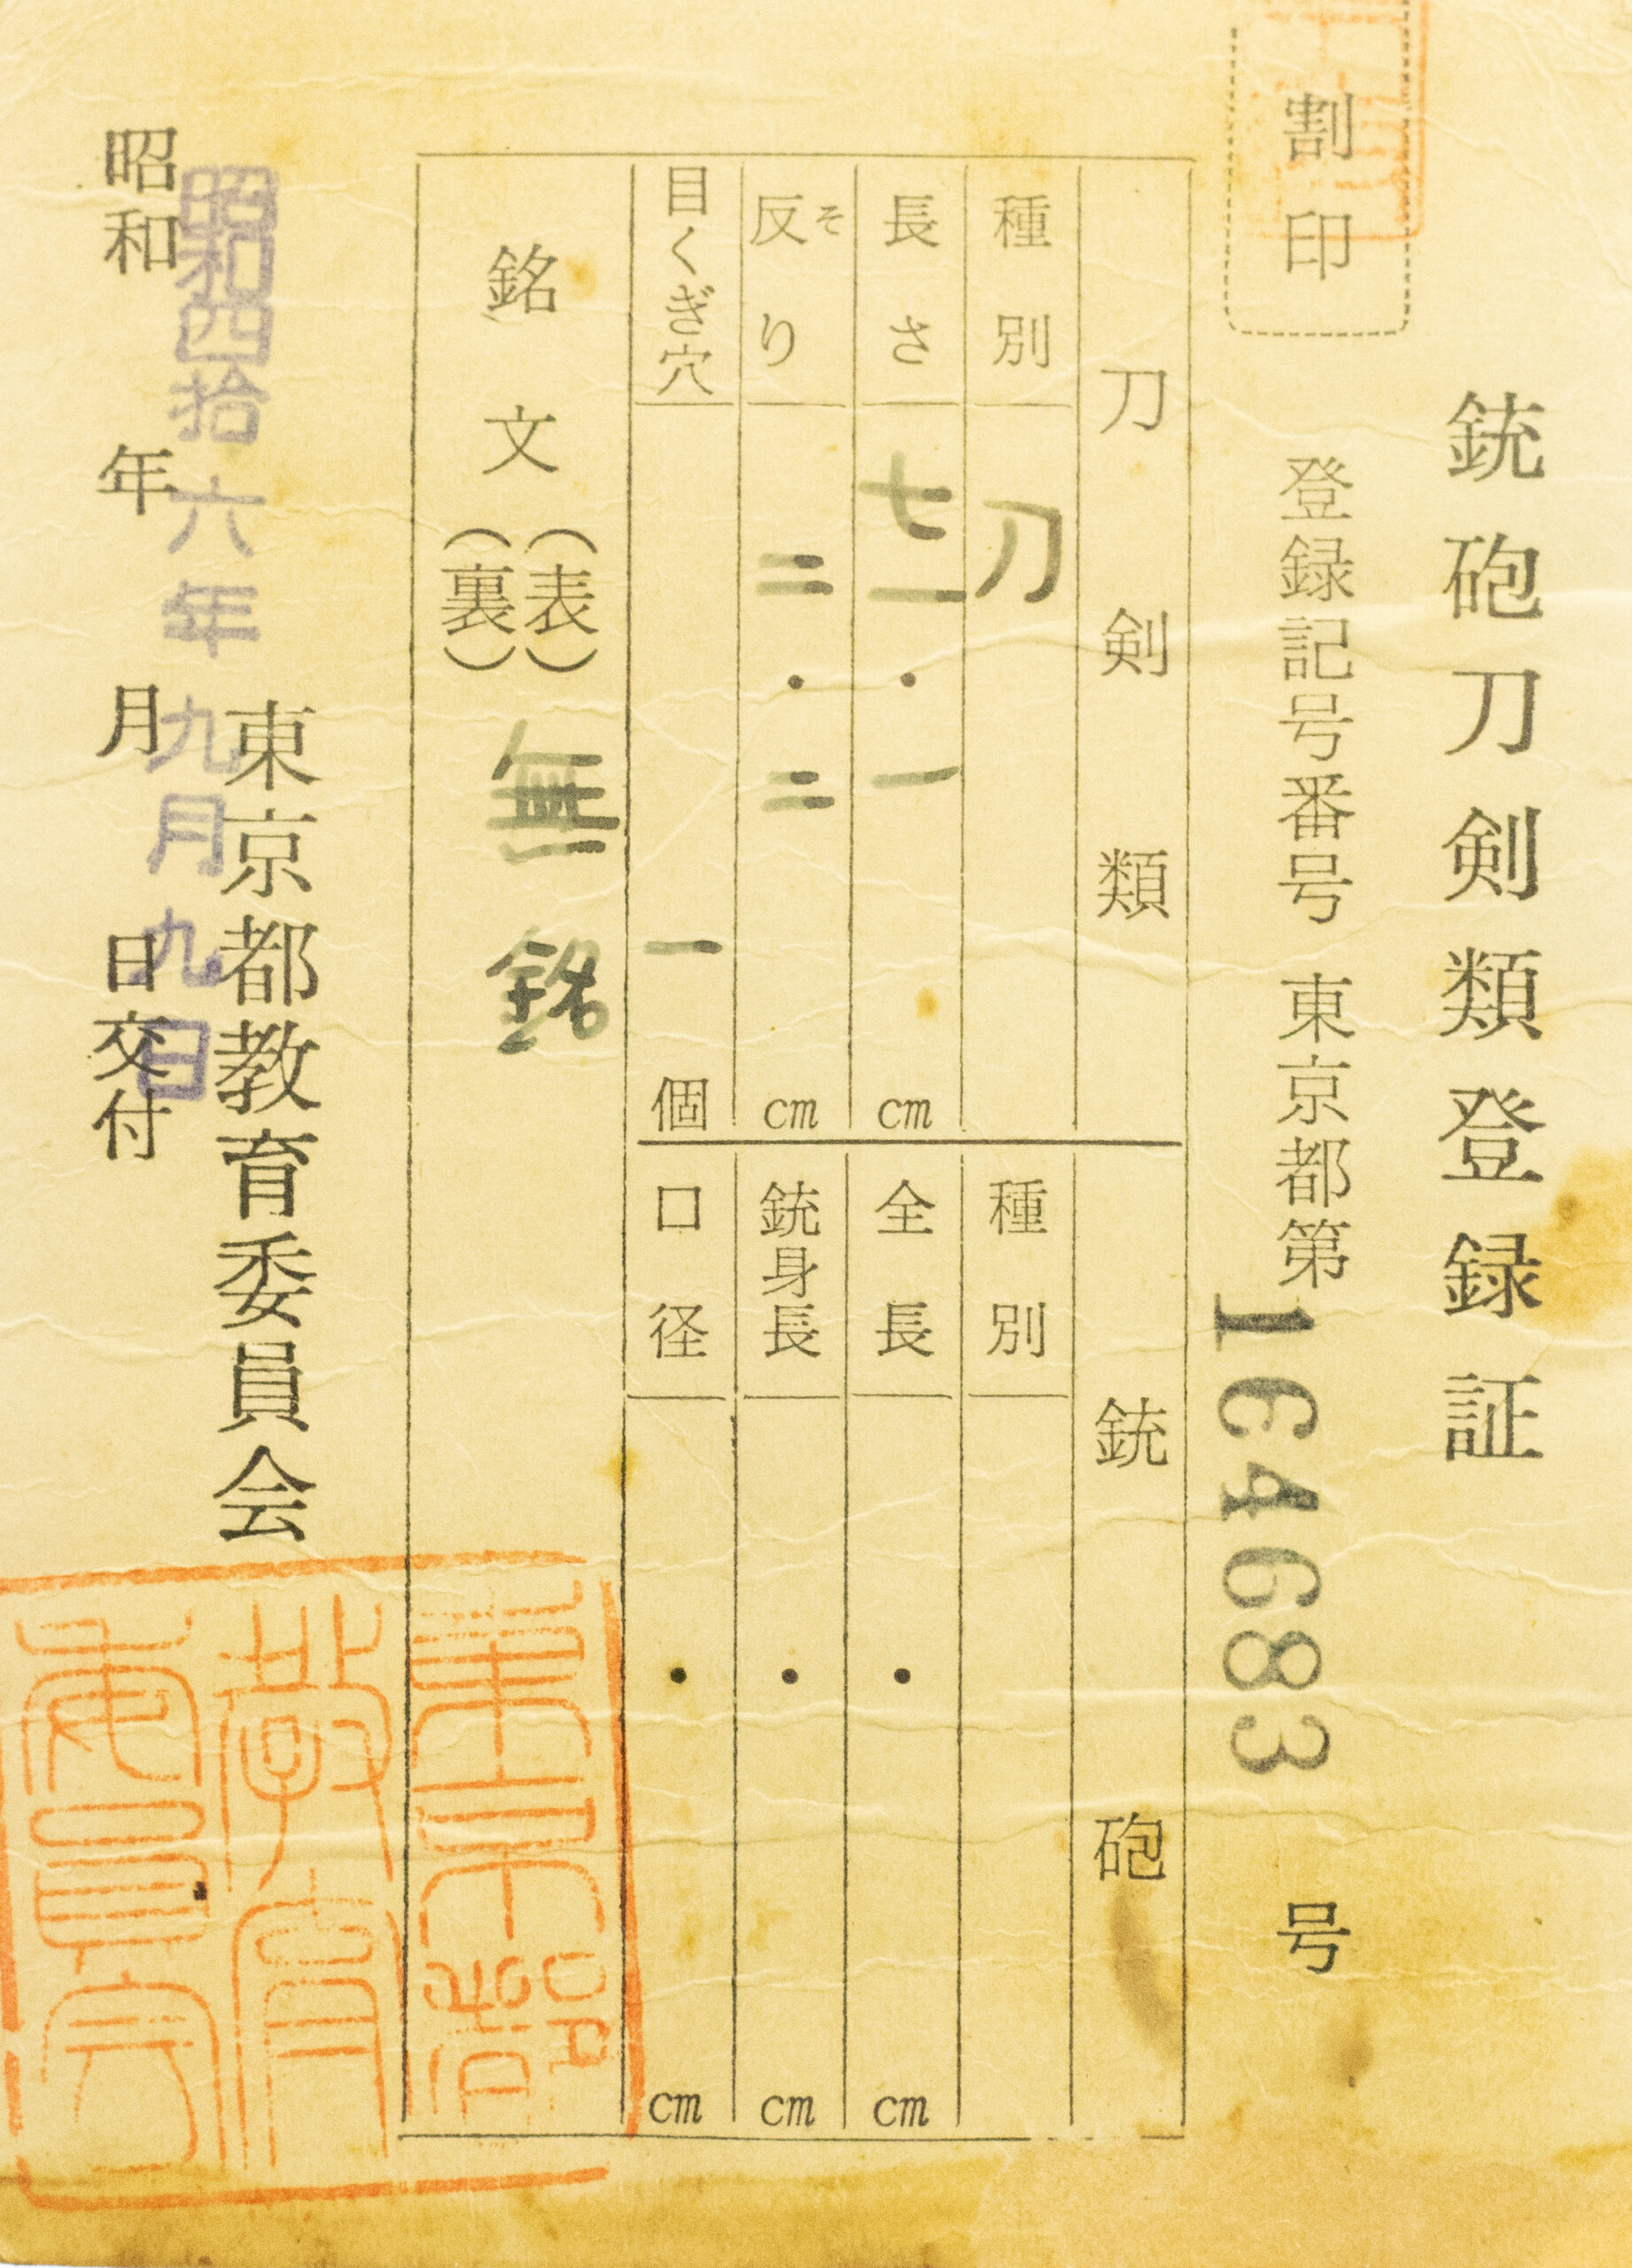 銃砲刀剣類登録証
割印
登録記号番号 東京都第164683号
刀剣類
種別 刀
長さ 七一・一cm
反り そ 二・二cm
目くぎ穴 一個
銃砲
種別
全長 ・cm
銃身長 ・cm
口径 ・cm
銘文(表)(裏) 無銘
東京都教育委員会
昭和四拾六年九月九日
昭和 年 月 日交付
東京都
教育
委員会